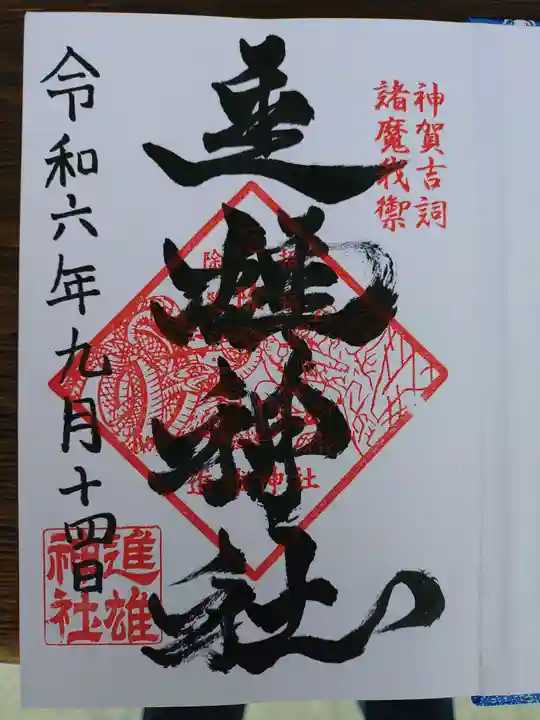 神賀吉詞
諸魔我禦
進雄神社
令和六年九月十四日
進雄
神社